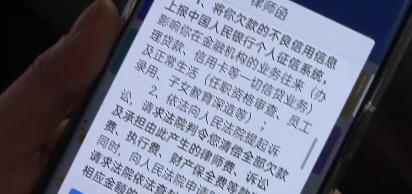 律师函
1、将你欠款的不良信用信息
上报中国人民银行个人征信系统,
影响你在金融机构的业务往来（办
理贷款、信用卡等一切信贷业务）
及正常生活（任职资格审查、员工
录用、子女教育深造等）;
2、依法向人民法院提起诉
讼,请求法院判令您清偿全部欠款
及承担由此产生的律师费、诉讼
费、执行费、财产保全费等款
同时,向人民法院申请
请求法院依法查封
相应金额的